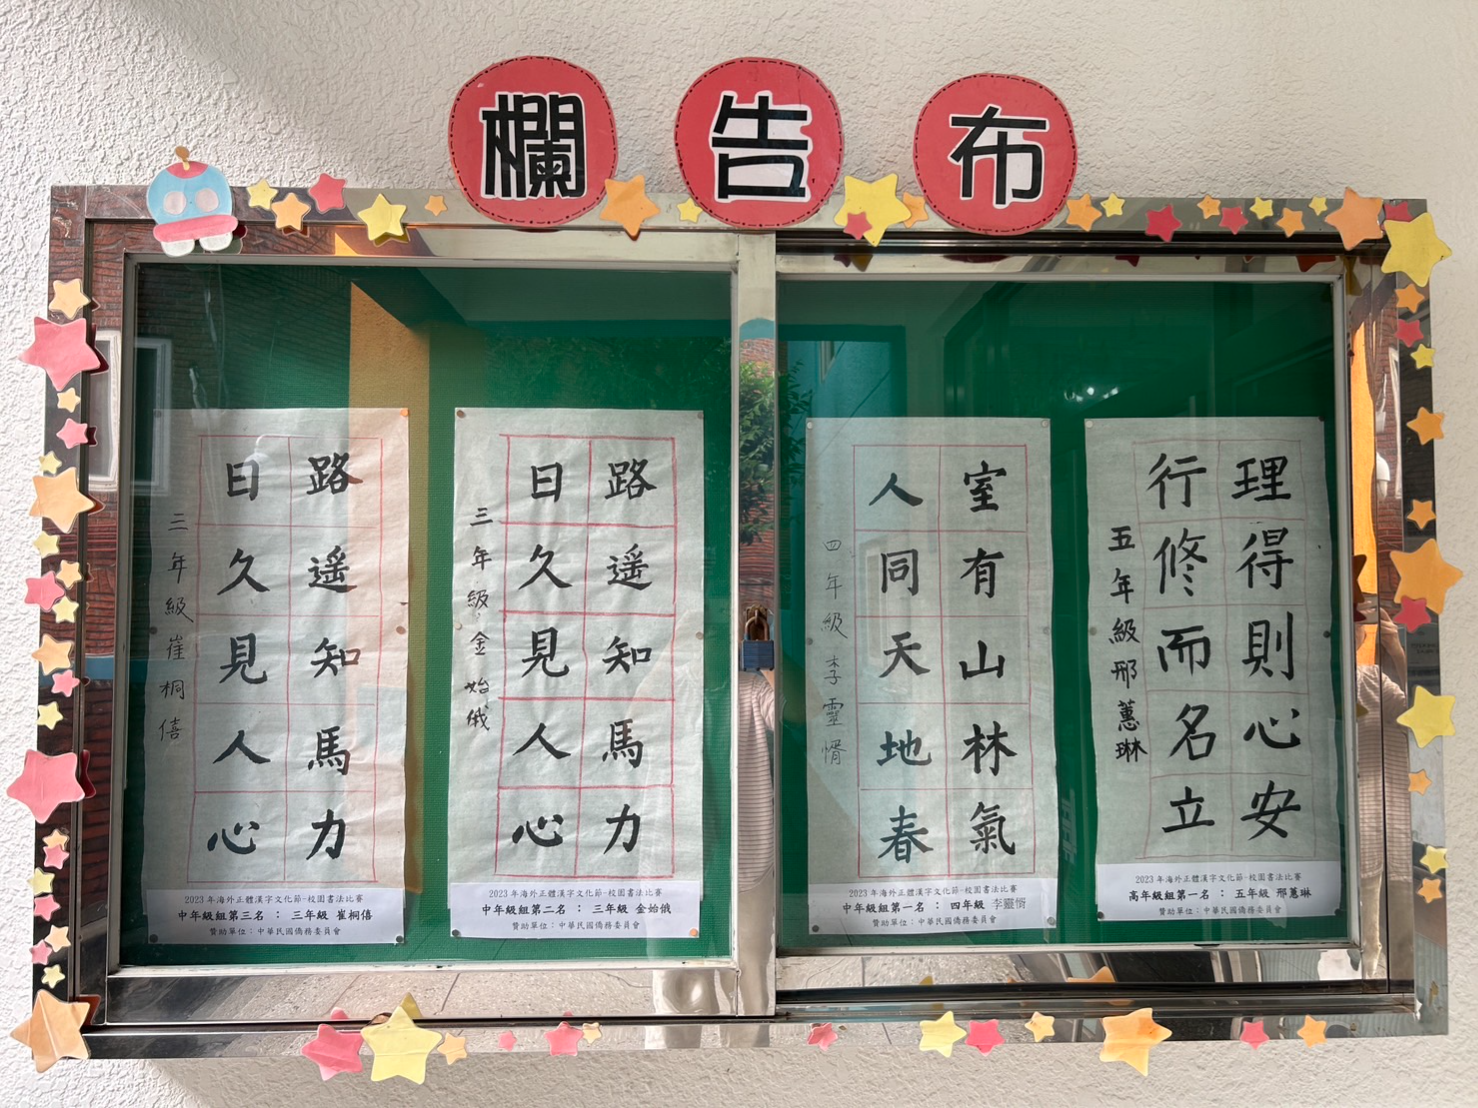 布告欄
理得則心安
行修而名立
五年級邢蕙琳
2023 年海外正體漢字文化節-校園書法比賽
高年級組第一名：五年級 邢蕙琳
贊助單位：中華民國僑務委員會
室有山林氣
人同天地春
四年級李靈
2023 年海外正體漢字文化節-校園書法比賽
中年級組第一名：四年級 李靈
贊助單位：中華民國僑務委員會
路遥知馬力
日久見人心
三年級金始俄
2023 年海外正體漢字文化節-校園書法比賽
中年級組第二名：三年級 金始俄
贊助單位：中華民國僑務委員會
路遥知馬力
日久見人心
三年級崔桐僖
2023 年海外正體漢字文化節-校園書法比賽
中年級組第三名：三年級 崔桐僖
贊助單位：中華民國僑務委員會